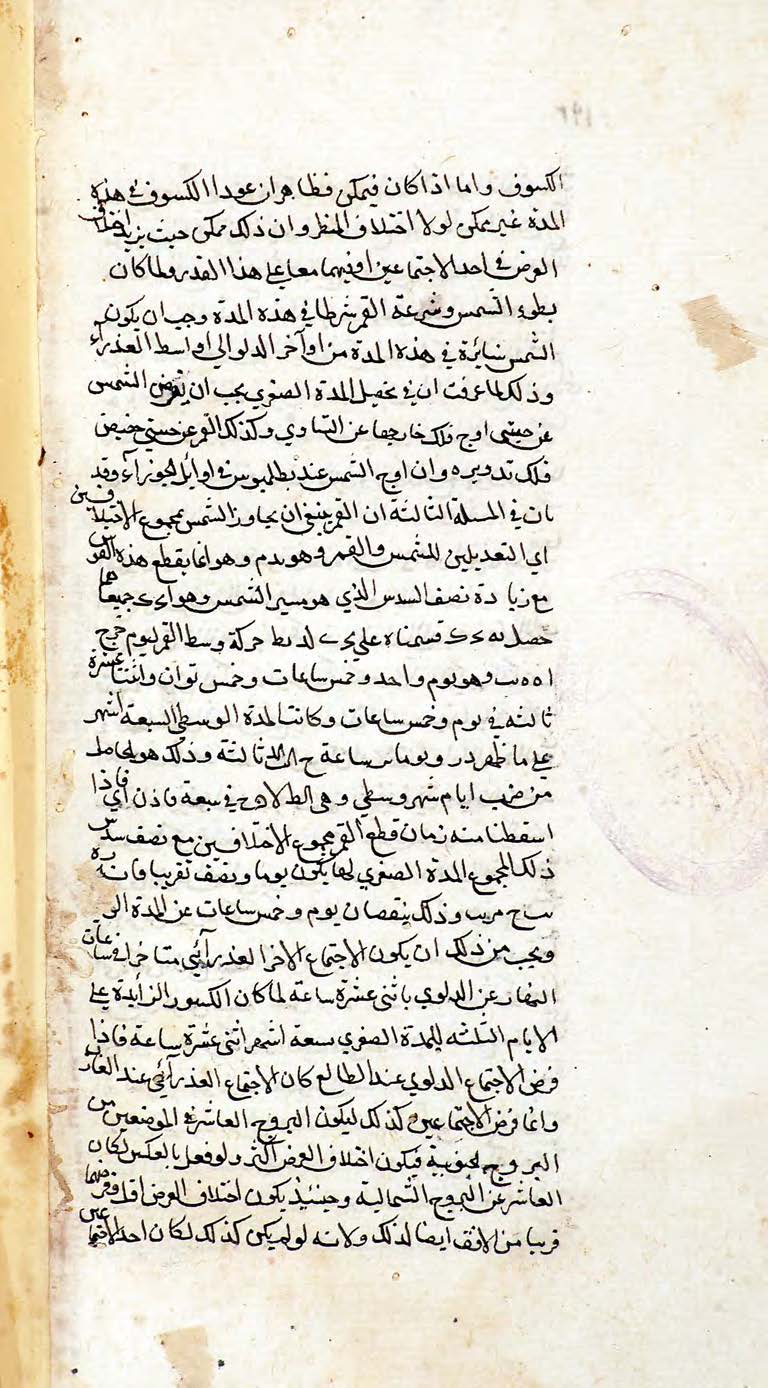 الكسوف واما اذا كان فيمكن فظاهر ان عود الكسوف في هذه
المدة غير ممكن لولا اختلاف المنظر وان ذلك ممكن حيث يزيد اختلاف
العرض في احد الاجتماعين او فيهما معا على هذا القدر ولما كان
بطوء الشمس وسرعة القمر شرطا في هذه المدة وجب ان يكون
الشمس سائرة في هذه المدة من اوآخر الدلو الى اواسط العذرآء
وذلك لما عرفت ان في تحصيل المدة الصغرى يجب ان يفرض الشمس
عن جنبتى اوج فلك خارجها عن التساوي وكذلك القمر عن جنبتى حضيض
فلك تدويره وان اوج الشمس عند بطلميوس في اوائل الجوزآء وقد
بان في المسئلة الثالثة ان القمر ينبغي ان يجاوز الشمس بمجموع الاختلافين
اي التعديلين للشمس والقمر وهو يدم وهو انما يقطع هذه القوس
مع زيادة نصف السدس الذي هو مسير الشمس وهو اي جميعها
حصل قسمناه على حركة وسط القمر ليوم خرج
وهو يوم واحد وخمس ساعات وخمس ثوان واثنتا عشرة
ثالثه في يوم وخمس ساعات وكانت المدة الوسطى لسبعة اشهر
على ما ظهر ويوما ساعة ثالثة وذلك هو الحاصل
من ضرب ايام شهر وسطي وهي في سبعة فاذن اي فاذا
اسقطنا منه زمان قطع القمر مجموع الاختلافين مع نصف سدس
ذلك المجموع المدة الصغرى لها يكون يوما ونصف تقريبا فانه
وذلك بنقصان يوم وخمس ساعات عن المدة
ويجب من ذلك ان يكون الاجتماع الاخر العذرآئي متاخرا في ساعات
النهار عن الدلوي باثنى عشرة ساعة لما كان الكسور الزايدة على
الايام الثلثه للمدة الصغرى بسعة اشهر اثنى عشرة ساعة فاذا
فرض الاجتماع الدلوي عند الطالع كان الاجتماع العذرآئي عند الغارب
وانما فرض الاجتماعين كذلك ليكون البروج العاشرة في الموضعين من
البروج الجنوبية فيكون اختلاف العرض اكثر ولو فعل بالعكس لكان
العاشر عن البروج الشمالية وحينئذ يكون اختلاف العرض اقل وفرضهما
قريبا من الافق ايضا لذلك ولانه لو لم يكن كذلك لكان احد الاجتماعين